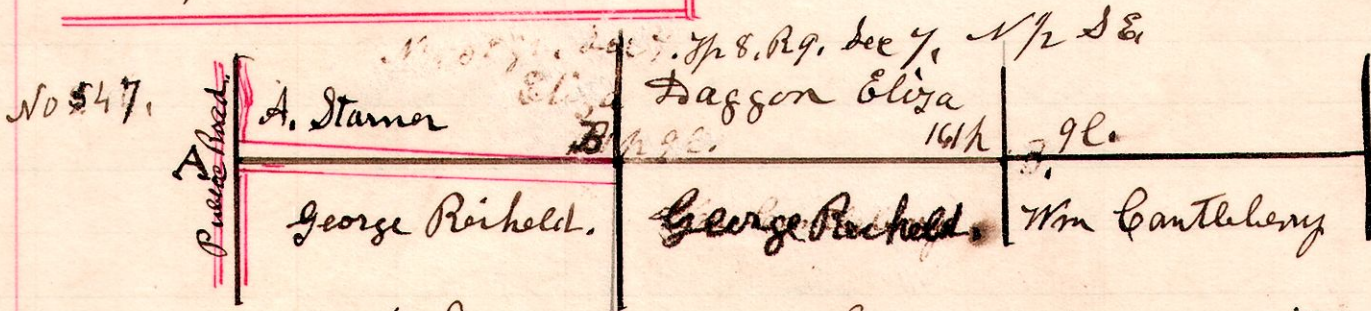 Tp 8. R9. Sec 7. N/2 SE.
No 547.
Public Road.
A
A. Starner
Daggon Eliza
B
161h
9l.
B.
George Reiheld.
George Reiheld.
Wm Cantleberry